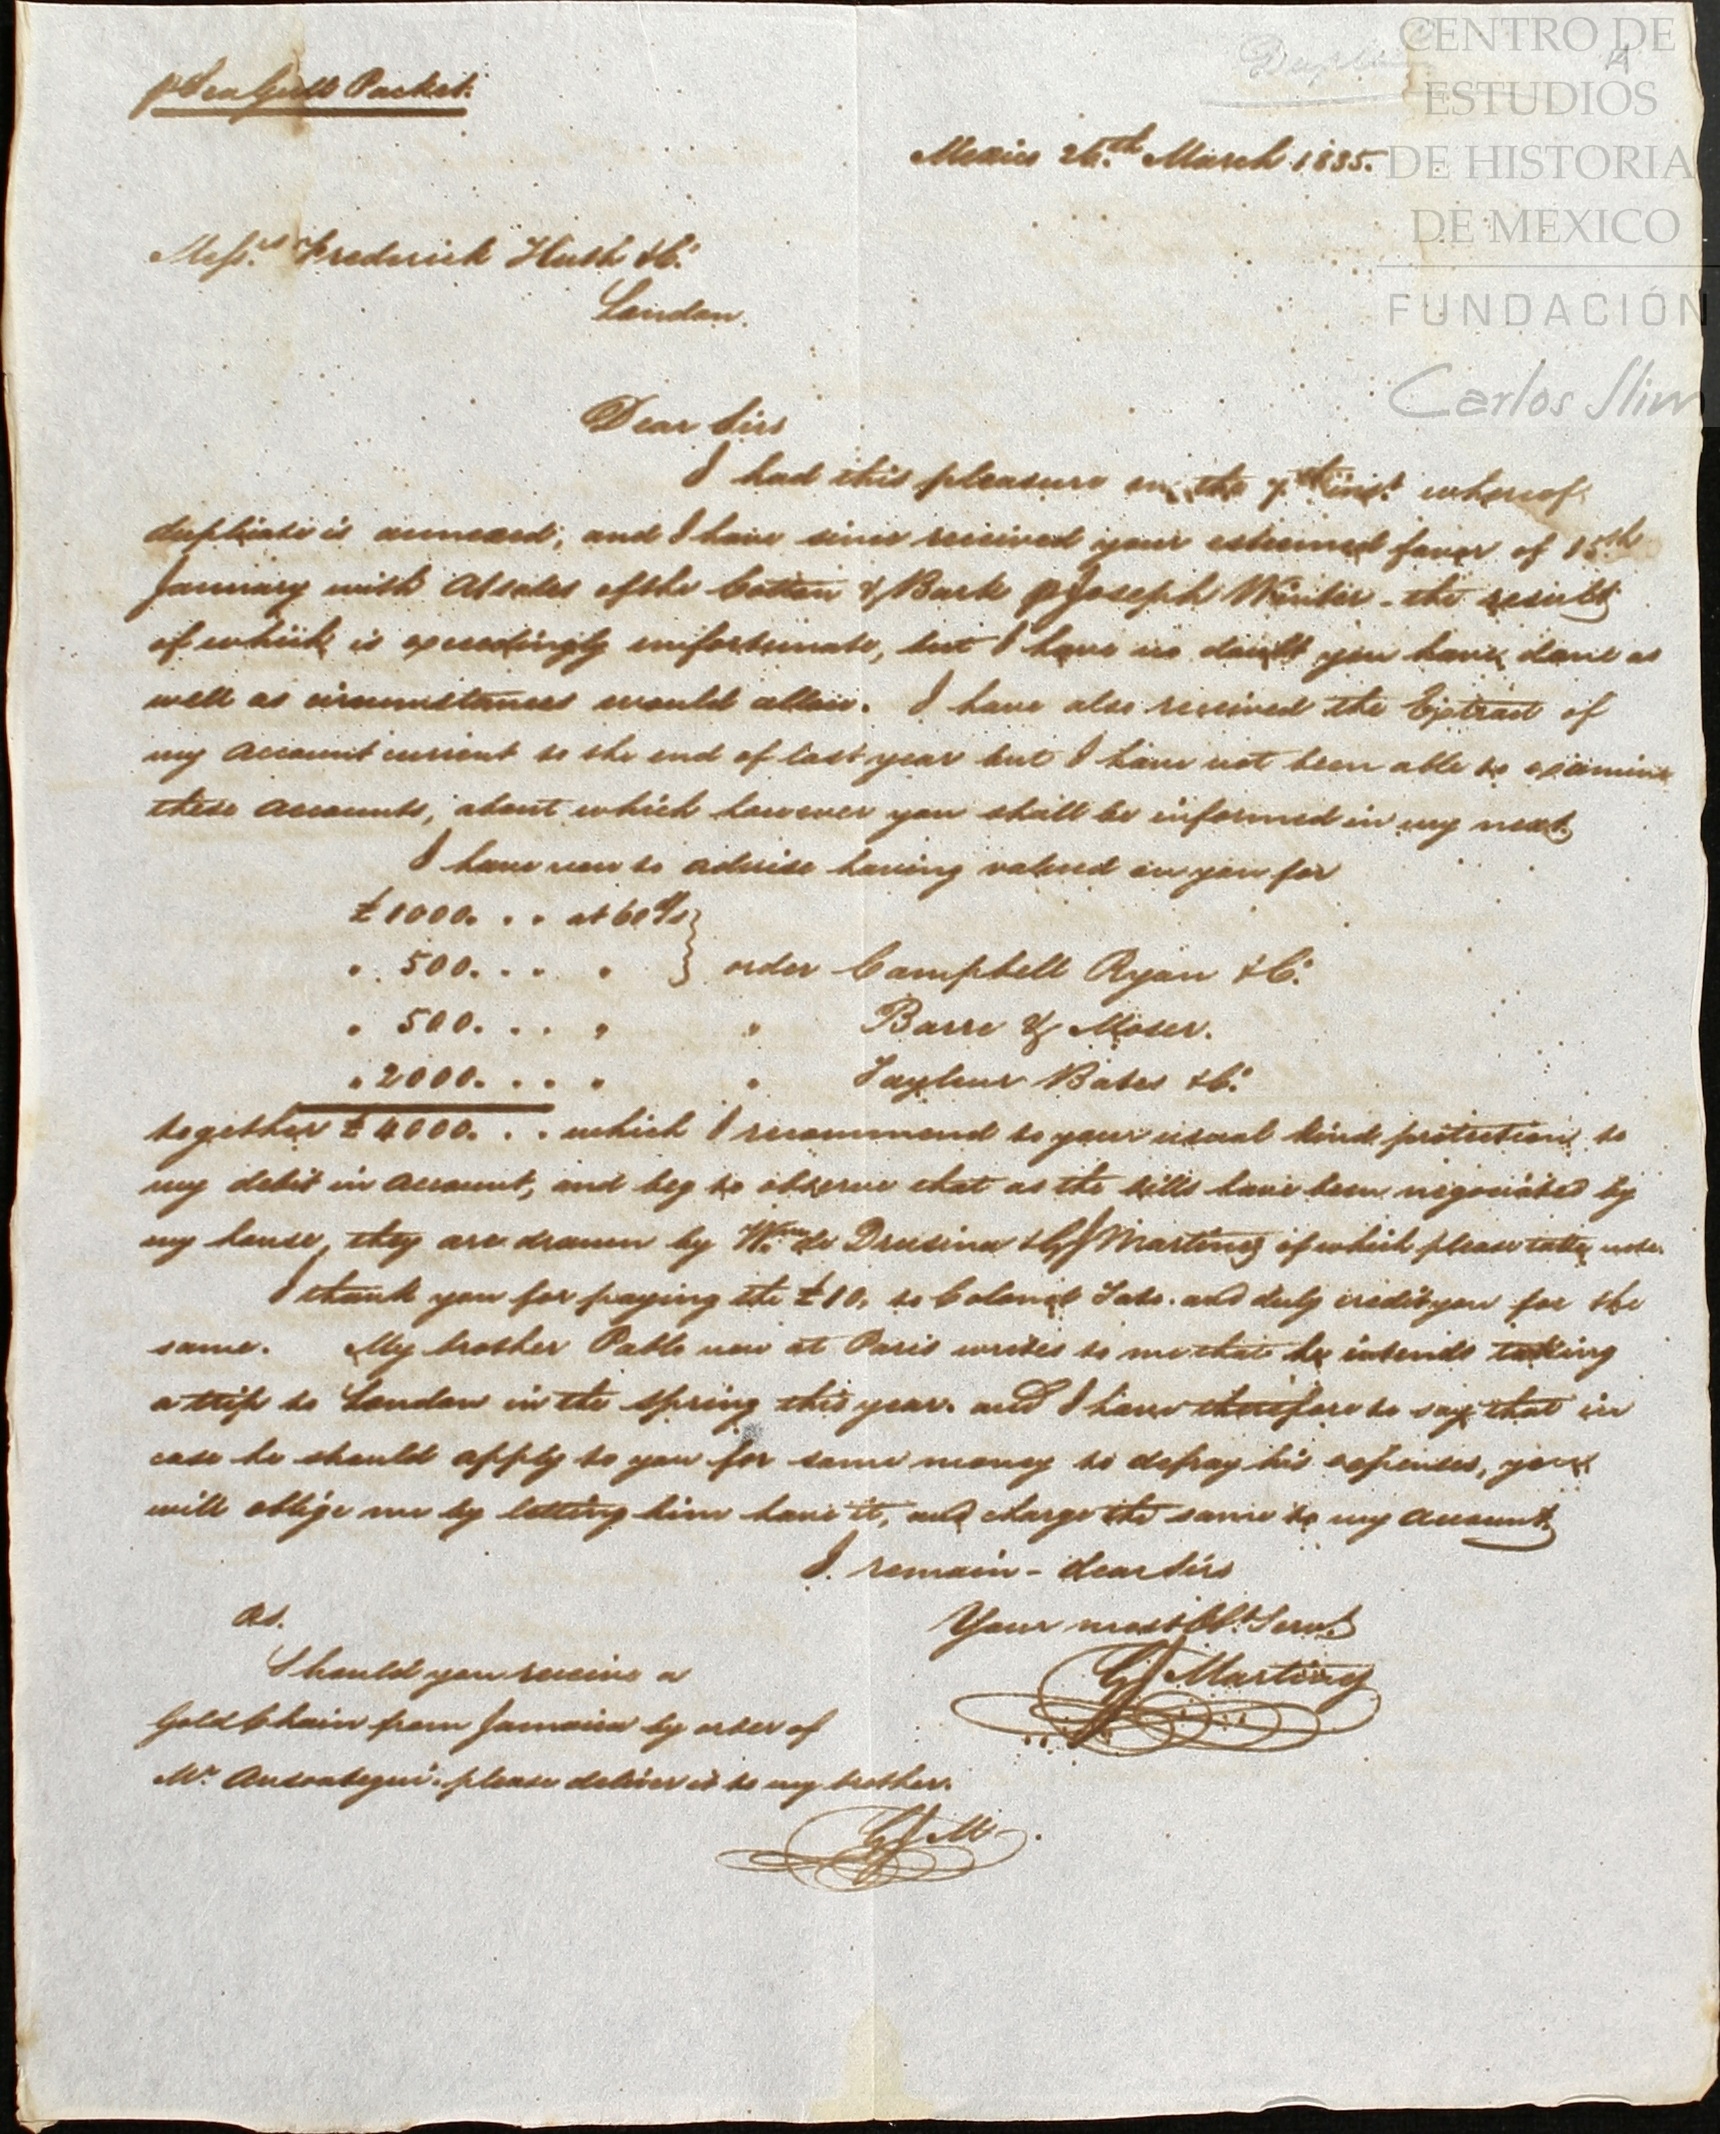 p Sea Gull Packet.
Mexico 26.th March 1835.
Mess.rs Frederick Huth & Co.
London.
Dear Sirs
I had this pleasure on the 7.th inst. whereof
duplicate is annexed, and I have since received your esteemed favor of 15th
January with A/sales of the Cotton & Bark p Joseph Winter - the result
of which is exceedingly unfortunate, but I have no doubt you have done as
well as circumstances would allow. I have also received the Extract of
my Account current to the end of last year but I have not been able to examine
these Accounts, about which however you shall be informed in my next.
I have now to advise having valued on you for
£ 1000. . . at 60 d/s
" 500. . . " order Campbell Ryan & Co.
" 500. . . " " Barre & Moser.
" 2000. . . " " Tayleur Bates & Co.
together £ 4000. . . which I recommend to your usual kind protection to
my debit in Account, and beg to observe that as the bills have been negociated by
my house, they are drawn by Wm. de Drusina & GJ Martinez of which please take note.
I thank you for paying the £10. to Colonel Tato. and duly credit you for the
same. My brother Pablo now at Paris writes to me that he intends taking
a trip to London in the spring this year. and I have therefore to say that in
case he should apply to you for some money to defray his expenses, you
will oblige me by letting him have it, and charge the same to my Account.
I remain - dear Sirs
Your most Ob.t Serv.t
GJ Martinez
Ps.
Should you receive a
Gold Chain from Jamaica by order of
Mr. Ansoategui. please deliver it to my brother.
GJM.
CENTRO DE
ESTUDIOS
DE HISTORIA
DE MEXICO
FUNDACIÓN
Carlos Slim